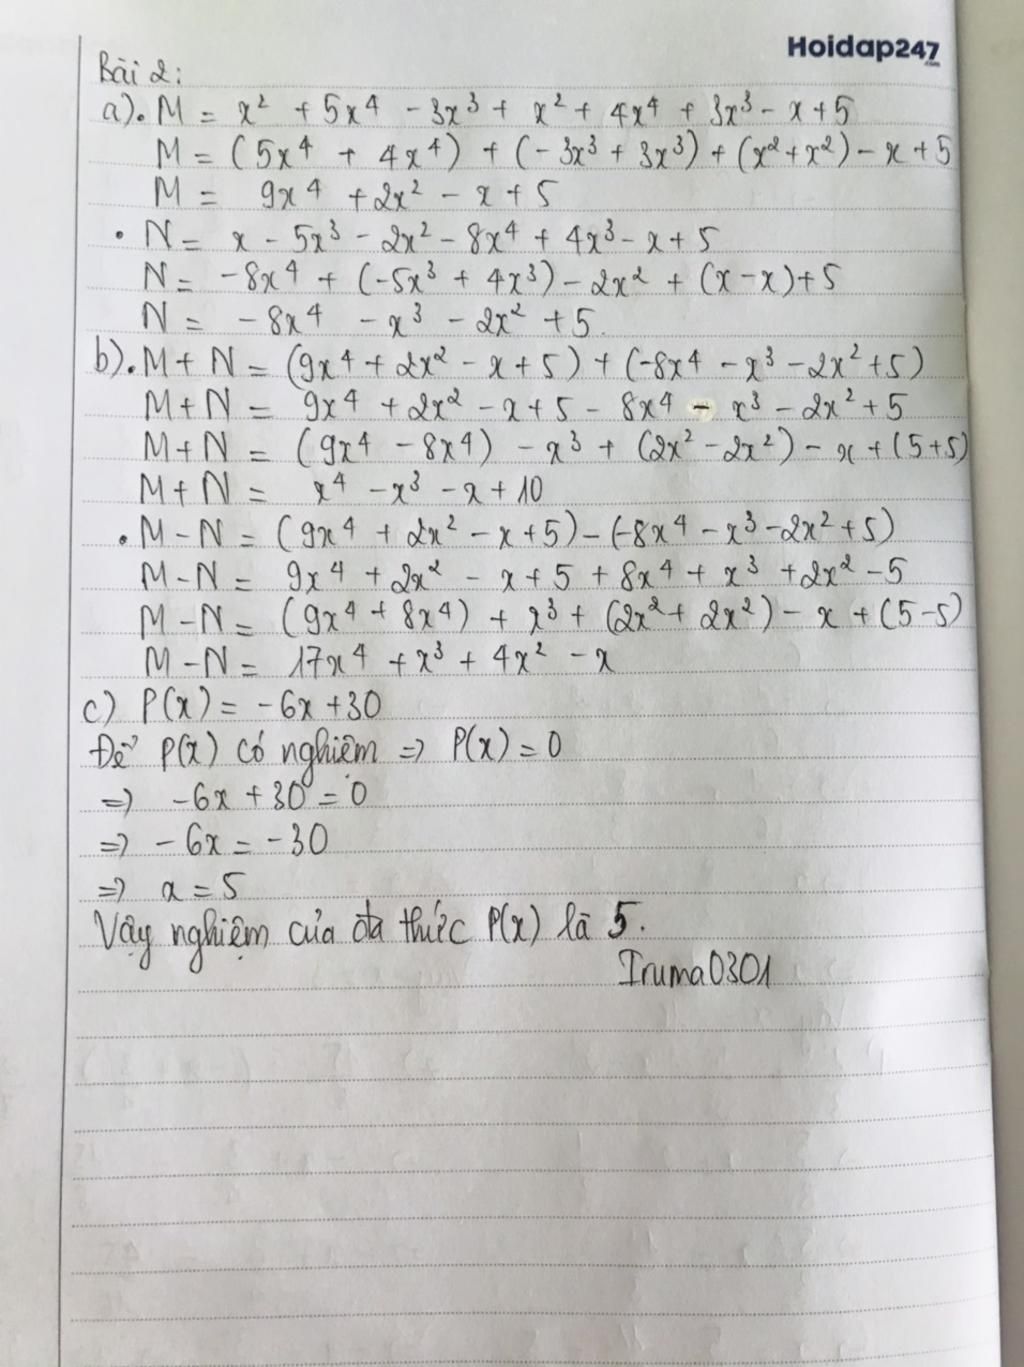 Hoidap247
.com
Bài 2:
a). M = x² + 5x⁴ - 3x³ + x² + 4x⁴ + 3x³ - x + 5
M = (5x⁴ + 4x⁴) + (-3x³ + 3x³) + (x² + x²) - x + 5
M = 9x⁴ + 2x² - x + 5
• N = x - 5x³ - 2x² - 8x⁴ + 4x³ - x + 5
N = -8x⁴ + (-5x³ + 4x³) - 2x² + (x - x) + 5
N = -8x⁴ - x³ - 2x² + 5.
b). M + N = (9x⁴ + 2x² - x + 5) + (-8x⁴ - x³ - 2x² + 5)
M + N = 9x⁴ + 2x² - x + 5 - 8x⁴ - x³ - 2x² + 5
M + N = (9x⁴ - 8x⁴) - x³ + (2x² - 2x²) - x + (5 + 5)
M + N = x⁴ - x³ - x + 10
• M - N = (9x⁴ + 2x² - x + 5) - (-8x⁴ - x³ - 2x² + 5)
M - N = 9x⁴ + 2x² - x + 5 + 8x⁴ + x³ + 2x² - 5
M - N = (9x⁴ + 8x⁴) + x³ + (2x² + 2x²) - x + (5 - 5)
M - N = 17x⁴ + x³ + 4x² - x
c) P(x) = -6x + 30
Để P(x) có nghiệm => P(x) = 0
=> -6x + 30 = 0
=> -6x = -30
=> x = 5
Vậy nghiệm của đa thức P(x) là 5.
Iruma0301